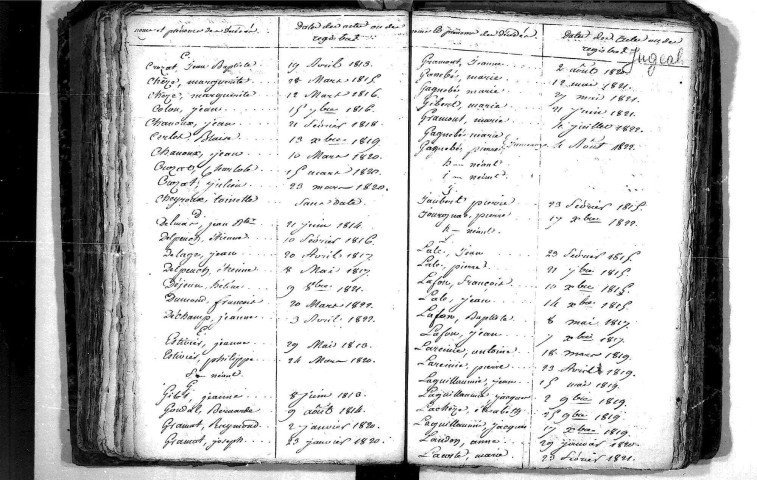 noms et prénoms des Décédés Dates des actes ou des registres
C.
Crozat, Jean Baptiste 19 Avril 1813.
Chèze, marguerite 28 Mars 1815.
Chèze, marguerite 12 Mars 1816.
Colon, jean 15 7bre 1816.
Chanoux, jean 21 février 1818.
Certes Blaise 13 xbre 1819
Chanoux, jean 10 Mars 1820.
Crozat, Charlote 15 mars 1820.
Crozat, julien 23 mars 1820.
Cheyroux, toinette Sans date.
D.
Delmas, jean Bte 21 juin 1814.
Delpeuch, Etienne 10 février 1816.
Delage, jean 20 Avril 1817.
Delpeuch, étienne 8 Mai 1817.
Dejean, heline 9 8bre 1821.
Dumond, francois 20 Mars 1822.
Dechamp, jeanne 3 Avril 1822.
E.
Estivier, jeanne 29 Mai 1813.
Estivier, philippe 24 Mars 1820.
f = néant
G.
Gibt, jeanne 8 juin 1813.
Goudal, Bernarde 9 août 1814.
Gramat, Raymond 2 janvier 1820.
Gramat, joseph 23 janvier 1820.
noms et prénoms des Décédés Dates des actes ou des registres
Jugeal.
Gramont, Jeanne 2 août 1820.
Gagnebé, marie 12 mai 1821.
Gagnebé marie 27 mai 1821.
Gibert, marie 21 juin 1821.
Gramont, marie 4 juillet 1822.
Gagnebé marie
Gagnebé, pierre 4 Août 1822.
h = néant
i = néant
J.
Jaubert pierre 23 février 1815.
Jouregnac, pierre 17 xbre 1822.
k = néant.
L.
Lale, Jean 23 février 1815
Lale, pierre 21 7bre 1815.
Lafon, François 10 xbre 1815.
Lale, jean 14 xbre 1815.
Lafon, Baptiste 8 mai 1817
Lafon, jean 7 xbre 1817.
Laremie, antoine 18 mars 1819.
Laremie, pierre 23 Avril 1819.
Laguillaumie, jean 15 mai 1819.
Laguillaumie, jacques 2 9bre 1819.
Lachèze, elisabeth 25 9bre 1819.
Laguillaumie, jacques 17 xbre 1819.
Laudon, anne 29 janvier 1820.
Lacoste, marie 23 février 1821.